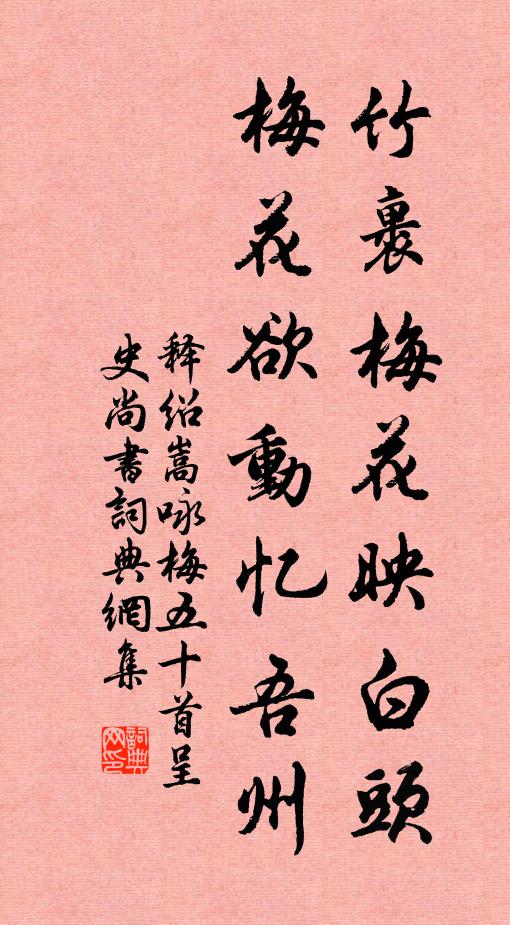 竹裏梅花映白頭
梅花欲動忆吾州
释绍嵩咏梅五十首呈
史尚書詞典網集
詞典网印